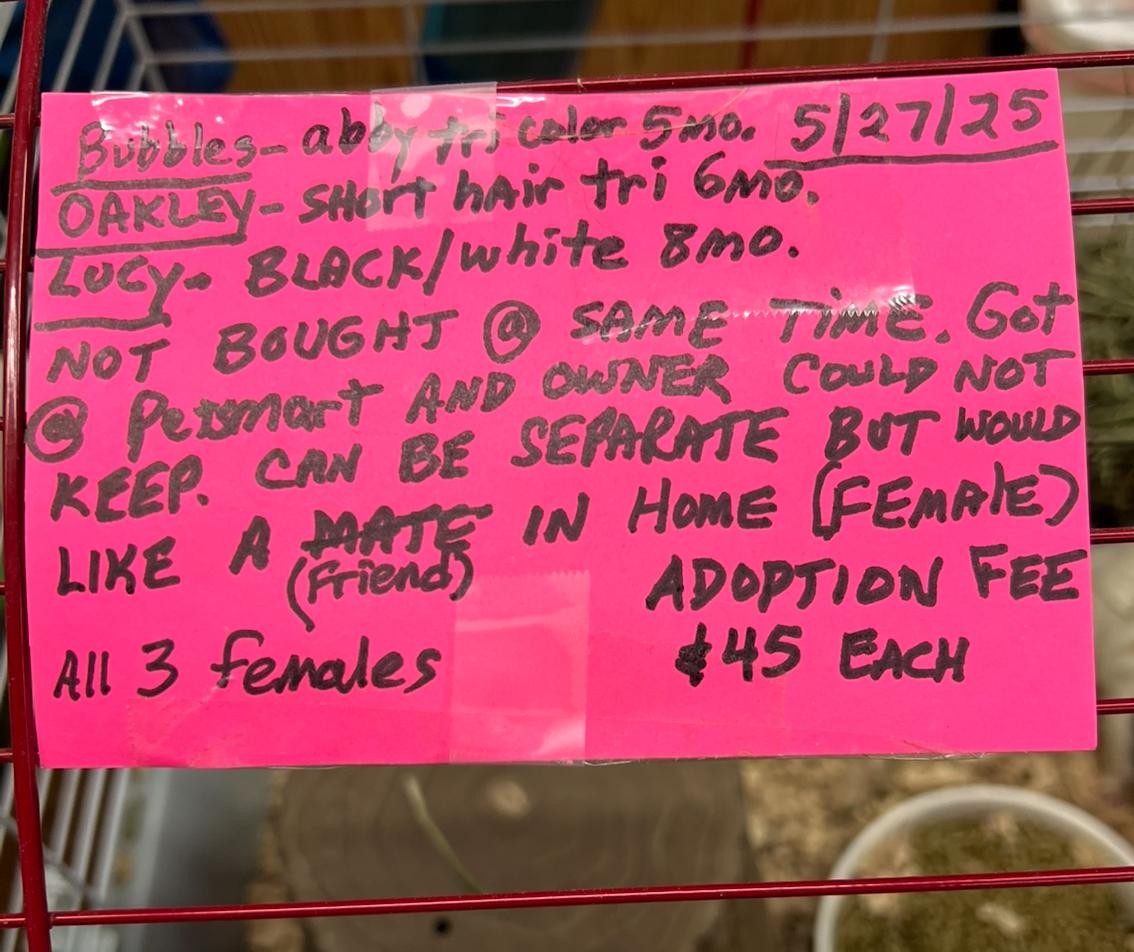 Bubbles- abby tri color 5mo. 5/27/25
OAKLEY- SHORT hAIR tri 6mo.
LUCY- BLACK/white 8mo.
NOT BOUGHT @ SAME TIME. Got
@ Petsmart AND OWNER COULD NOT
KEEP. CAN BE SEPARATE BUT WOULD
LIKE A MATE IN HOME (FEMAlE)
(Friend)
ADOPTION FEE
All 3 females
$45 EACH